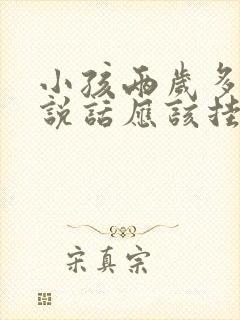 小孩兩歲多
說話應該掛
宋真宗